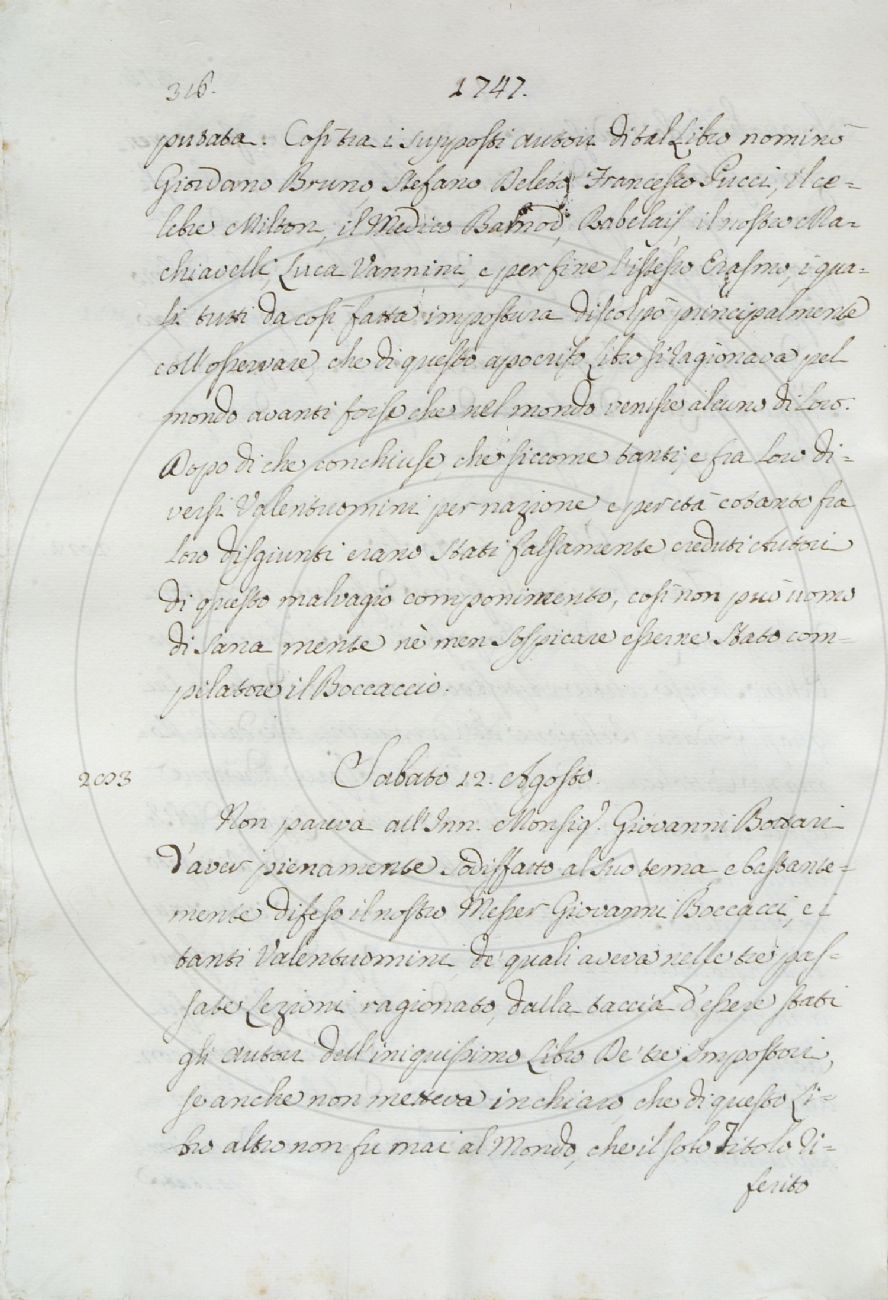 316.
1747.
putata. Così tra i supposti autori di tal Libro nominò
Giordano Bruno, Stefano Doleto, Francesco Pucci, il ce-
lebre Milton, il Medico Barnod, Rabelais, il nostro Ma-
chiavelli, Luca Vannini, e per fine l'istesso Erasmo, i qua-
li tutti da così fatta impostura discolpò principalmente
coll'osservare, che di questo apocrifo Libro si ragionava pel
mondo avanti forse che nel mondo venisse alcuno di Loro.
Dopo di che conchiuse, che siccome tanti, e fra loro di-
versi Valentuomini per nazione e per età cotanto fra
loro disgiunti erano stati falsamente creduti Autori
di questo malvagio componimento, così non può uomo
di sana mente nè men sospicare esserne stato com-
pilatore il Boccaccio.
2003
Sabato 12. Agosto.
Non pareva all'Inn. Monsig.r Giovanni Bottari
d'aver pienamente sodisfatto al suo tema e bastante-
mente difeso il nostro Messer Giovanni Boccacci, e i
tanti Valentuomini de' quali aveva nelle tre pas-
sate Lezioni ragionato, dalla taccia d'essere stati
gli autori dell'iniquissimo Libro De' tre Impostori,
se anche non metteva in chiaro, che di questo Li-
bro altro non fu mai al Mondo, che il solo Titolo di-
ferito